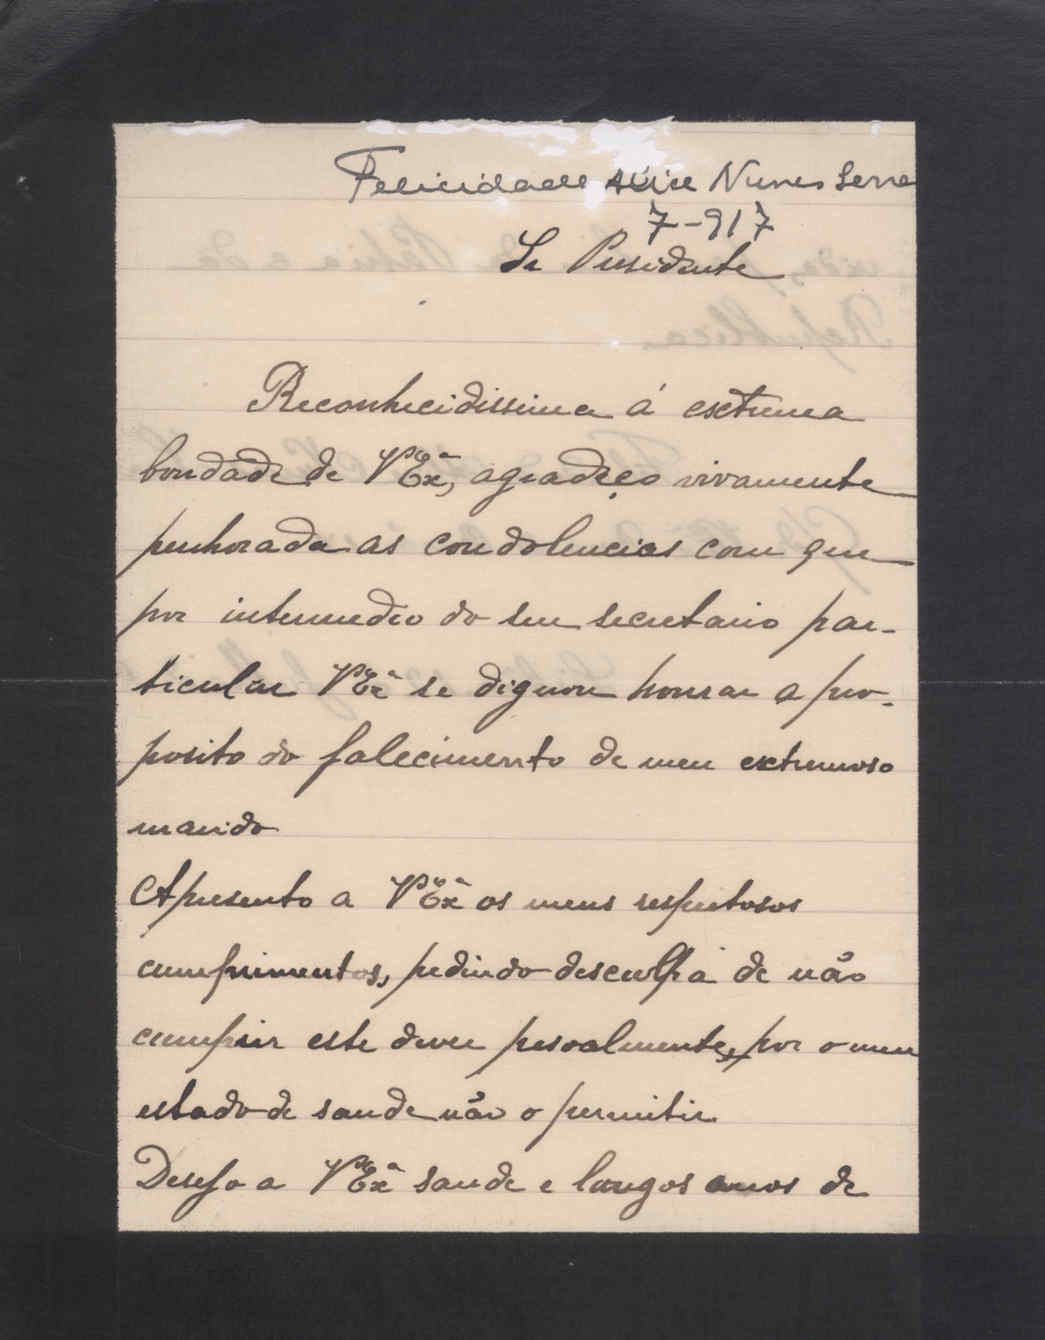 Felicidade Alice Nunes Serra
7-917
Sr Presidente
Reconhecidissima á extrema
bondade de V Exª, agradeço vivamente
penhorada as condolencias com que
por intermedio do seu secretario par-
ticular V Exª se dignou honrar a pro-
posito do falecimento de meu extremoso
marido
Apresento a V Exª os meus respeitosos
cumprimentos, pedindo desculpa de não
cumprir este dever pessoalmente, por o meu
estado de saude não o permitir
Desejo a V Exª saude e longos anos de